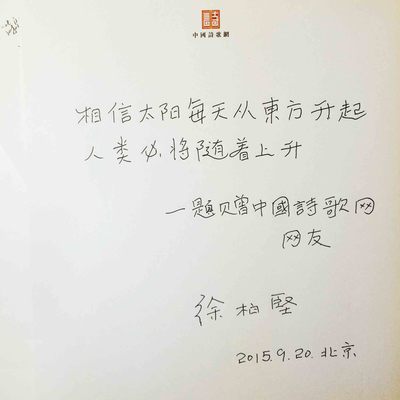 中國詩歌網
相信太阳每天从東方升起
人类必将随着上升
一题赠中國詩歌网
网友
徐柏堅
2015.9.20.北京